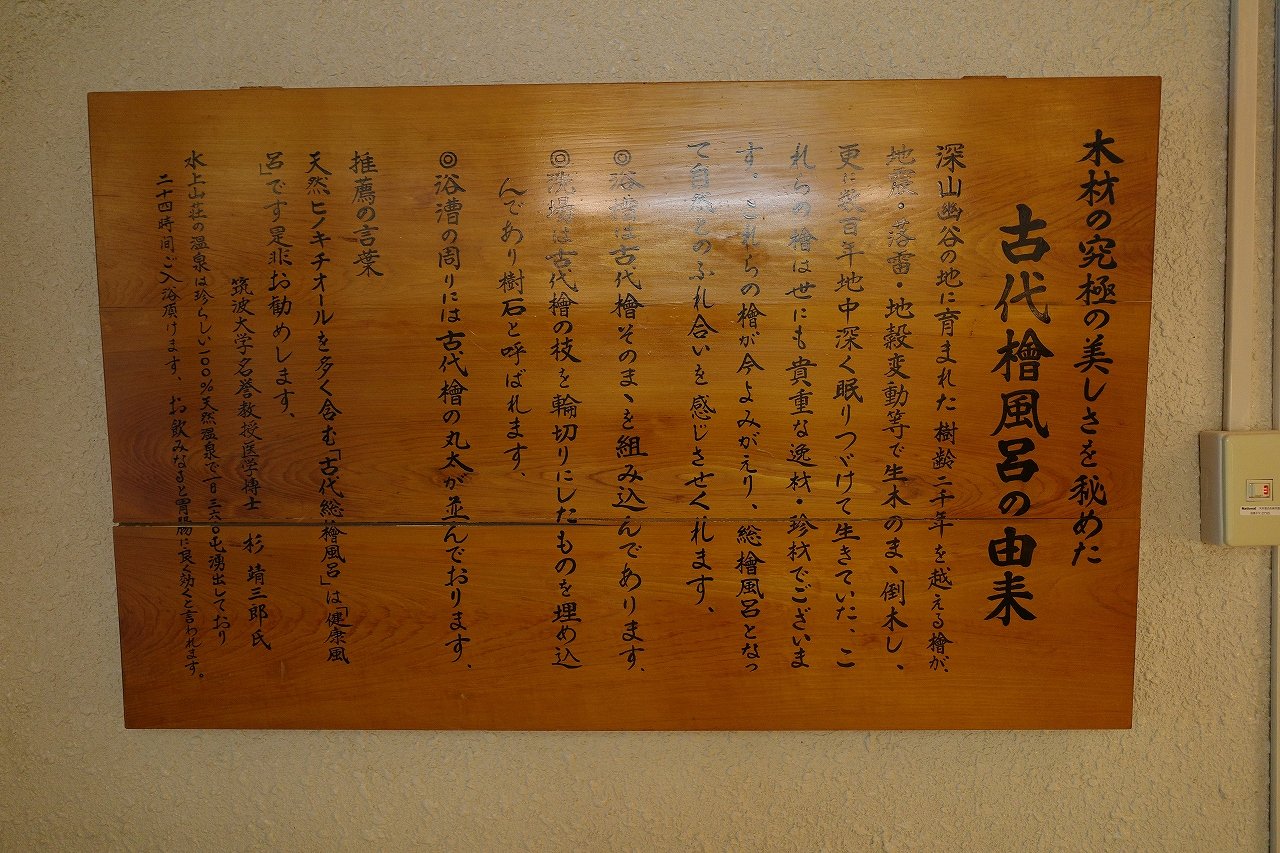 木材の究極の美しさを秘めた
古代檜風呂の由来
深山幽谷の地に育まれた樹齢二千年を越える檜が、
地震・落雷・地殻変動等で生木のまゝ倒木し、
更に数百年地中深く眠りつづけて生きていた、こ
れらの檜は世にも貴重な逸材・珍材でございま
す。これらの檜が今よみがえり、総檜風呂となっ
て自然とのふれ合いを感じさせてくれます、
◎浴槽は古代檜そのまゝを組み込んであります、
◎洗場は古代檜の枝を輪切りにしたものを埋め込
んであり樹石と呼ばれます、
◎浴漕の周りには古代檜の丸太が並んでおります、
推薦の言葉
天然ヒノキチオールを多く含む「古代総檜風呂」は「健康風
呂」です是非お勧めします、
筑波大学名誉教授医学博士 杉 靖三郎 氏
水上山荘の温泉は珍らしい一〇〇%天然温泉で一日三六〇屯湧出しており
二十四時間ご入浴頂けます、お飲みなると胃腸に良く効くと言われます。
National
3